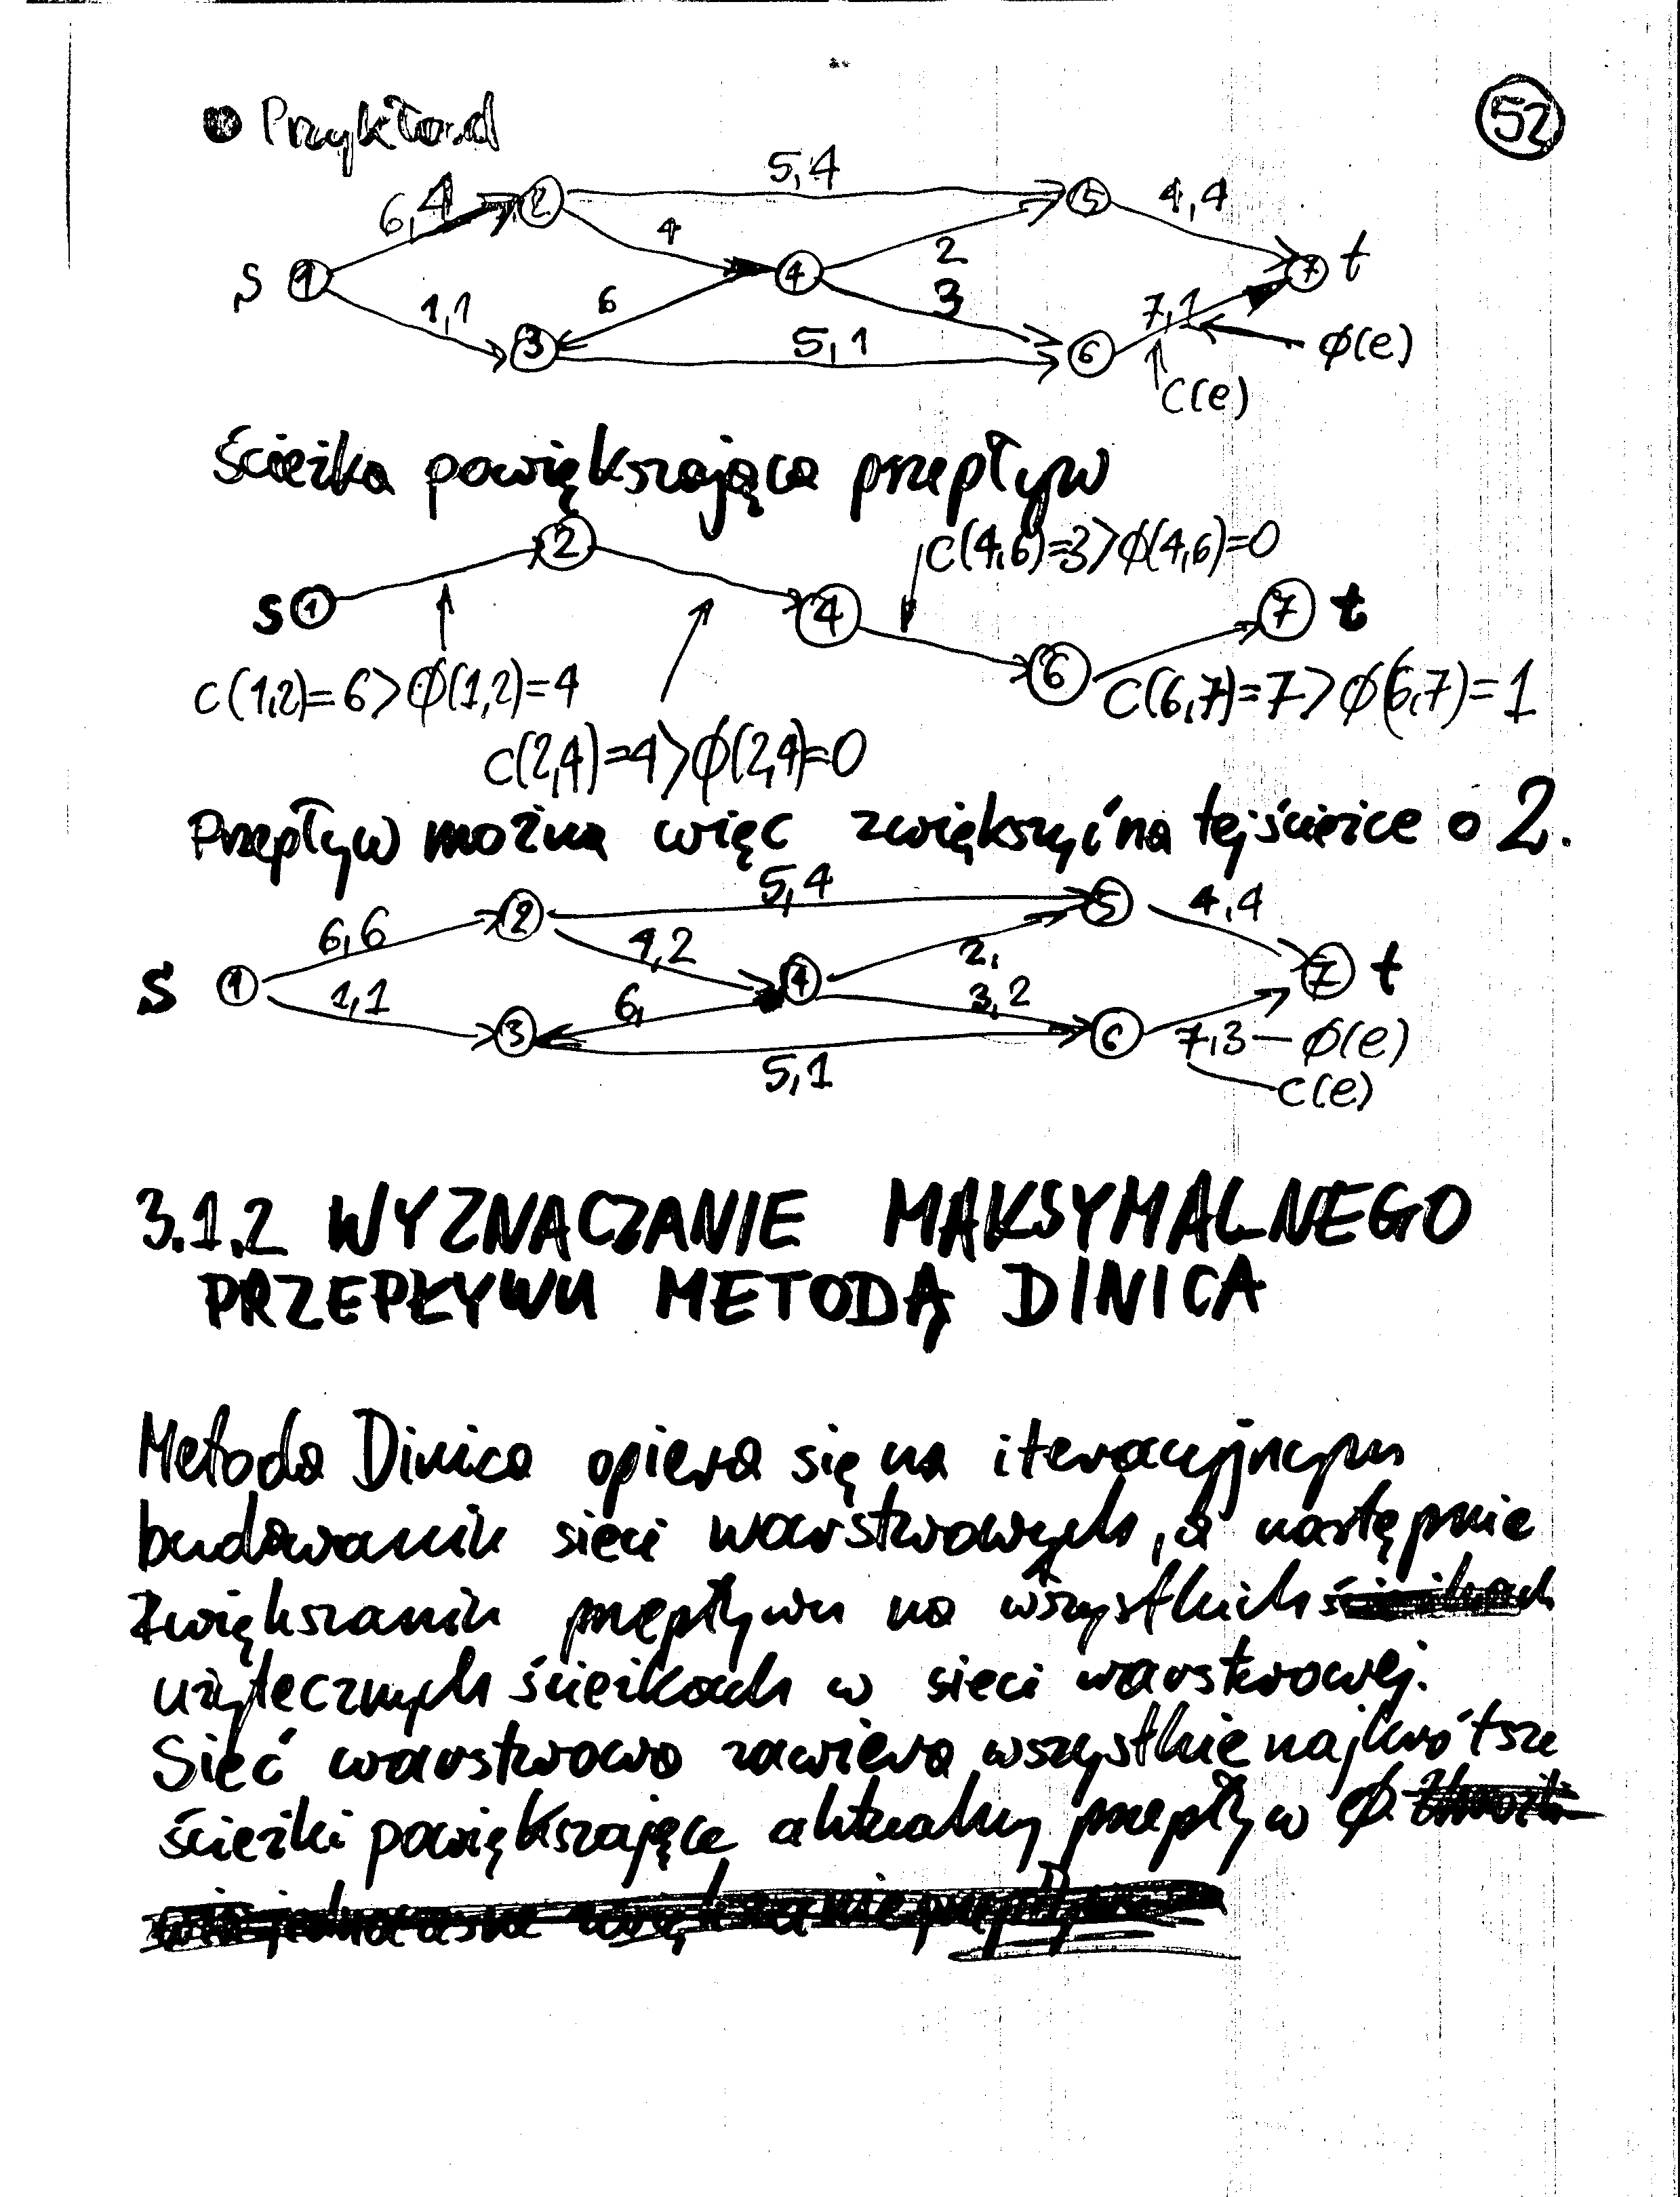 52
• Przykład
5,4
6,4
2
5
4,4
4
s 1
4
2
7 t
1,1
6
3
7,1
3
5,1
6
ϕ(e)
c(e)
ścieżka powiększająca przepływ
2
c(4,6)=3>ϕ(4,6)=0
s 1
4
7 t
6
c(1,2)=6>ϕ(1,2)=4
c(6,7)=7>ϕ(6,7)=1
c(2,4)=4>ϕ(2,4)=0
Przepływ można więc zwiększyć na tej ścieżce o 2.
5,4
6,6
2
5
4,4
4,2
2,
s 1
4
7 t
1,1
6,
3,2
3
6
7,3 — ϕ(e)
5,1
c(e)
3.1.2 WYZNACZANIE MAKSYMALNEGO
PRZEPŁYWU METODĄ DINICA
Metoda Dinica opiera się na iteracyjnym
budowaniu sieci warstwowych, a następnie
zwiększaniu przepływu na wszystkich
użytecznych ścieżkach w sieci warstwowej.
Sieć warstwowa zawiera wszystkie najkrótsze
ścieżki powiększające aktualny przepływ ϕ.